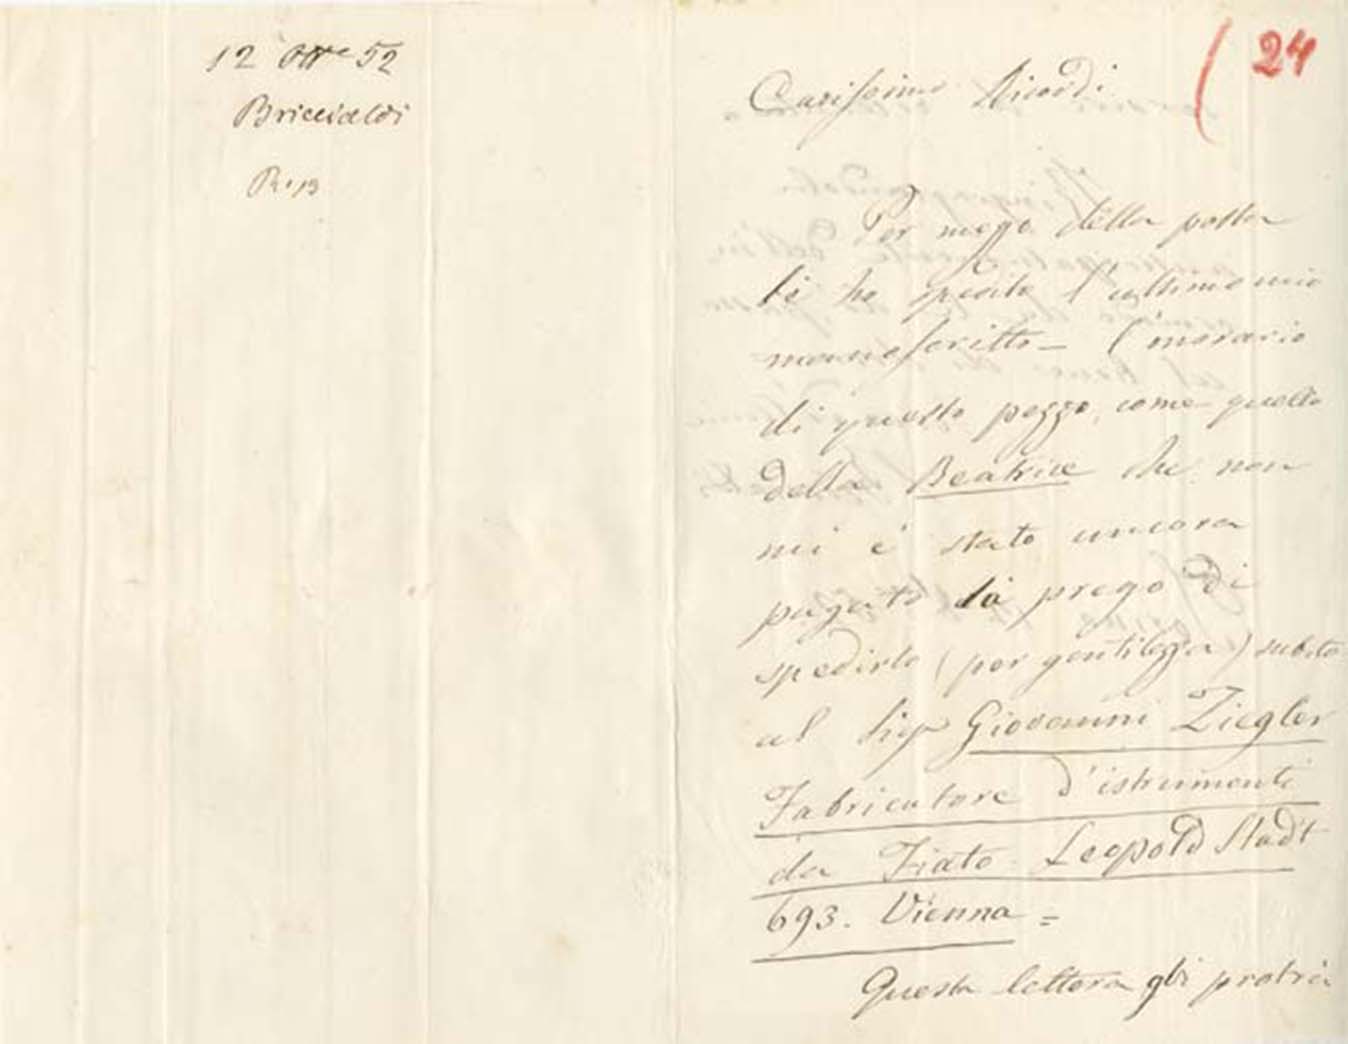 12 8bre 52
Briccialdi
24
Carissimo Ricordi
Per mezzo della posta
ti ho spedito l'ultimo mio
manoscritto – l'onorario
di questo pezzo, come quello
della Beatrice che non
mi è stato ancora
pagato ti prego di
spedirlo (per gentilezza) subito
al Sigr Giovanni Ziegler
Fabricatore d'istrumenti
da Fiato Leopold Stadt
693. Vienna =
Questa lettera gli